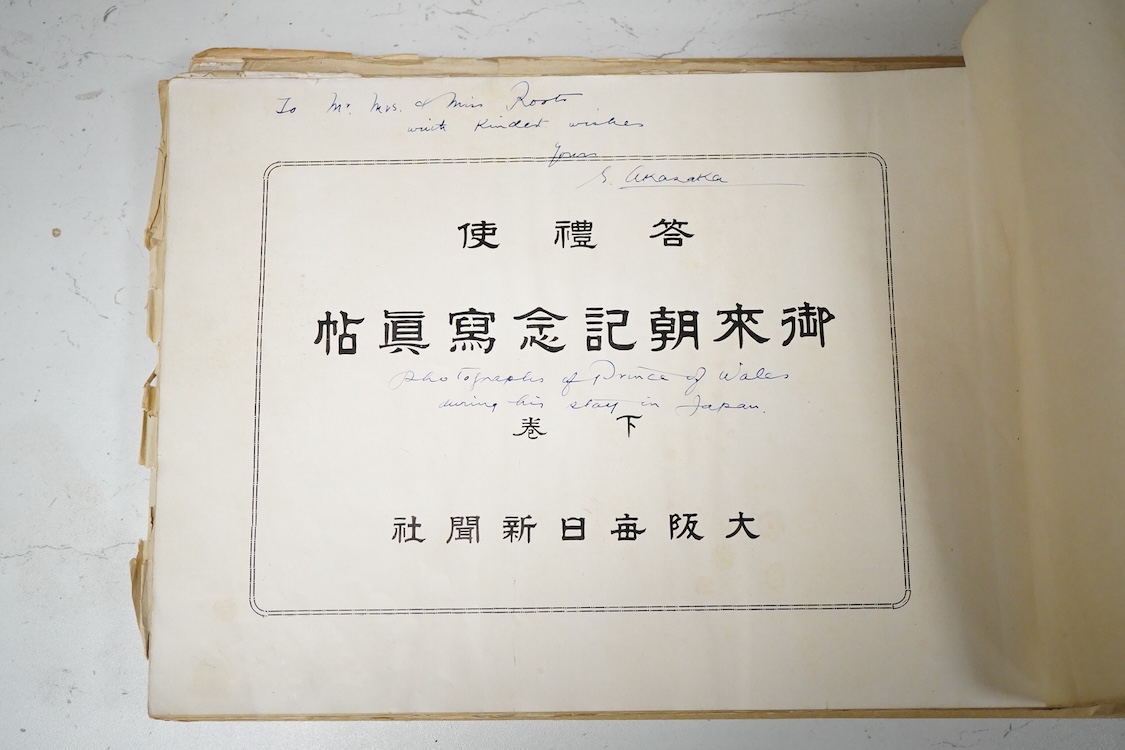 To Mr. Mrs. & Miss Roots
with Kindest wishes
Yours
S. Akasaka
答禮使
御來朝記念寫眞帖
Photographs of Prince of Wales
during his stay in Japan.
下卷
大阪每日新聞社